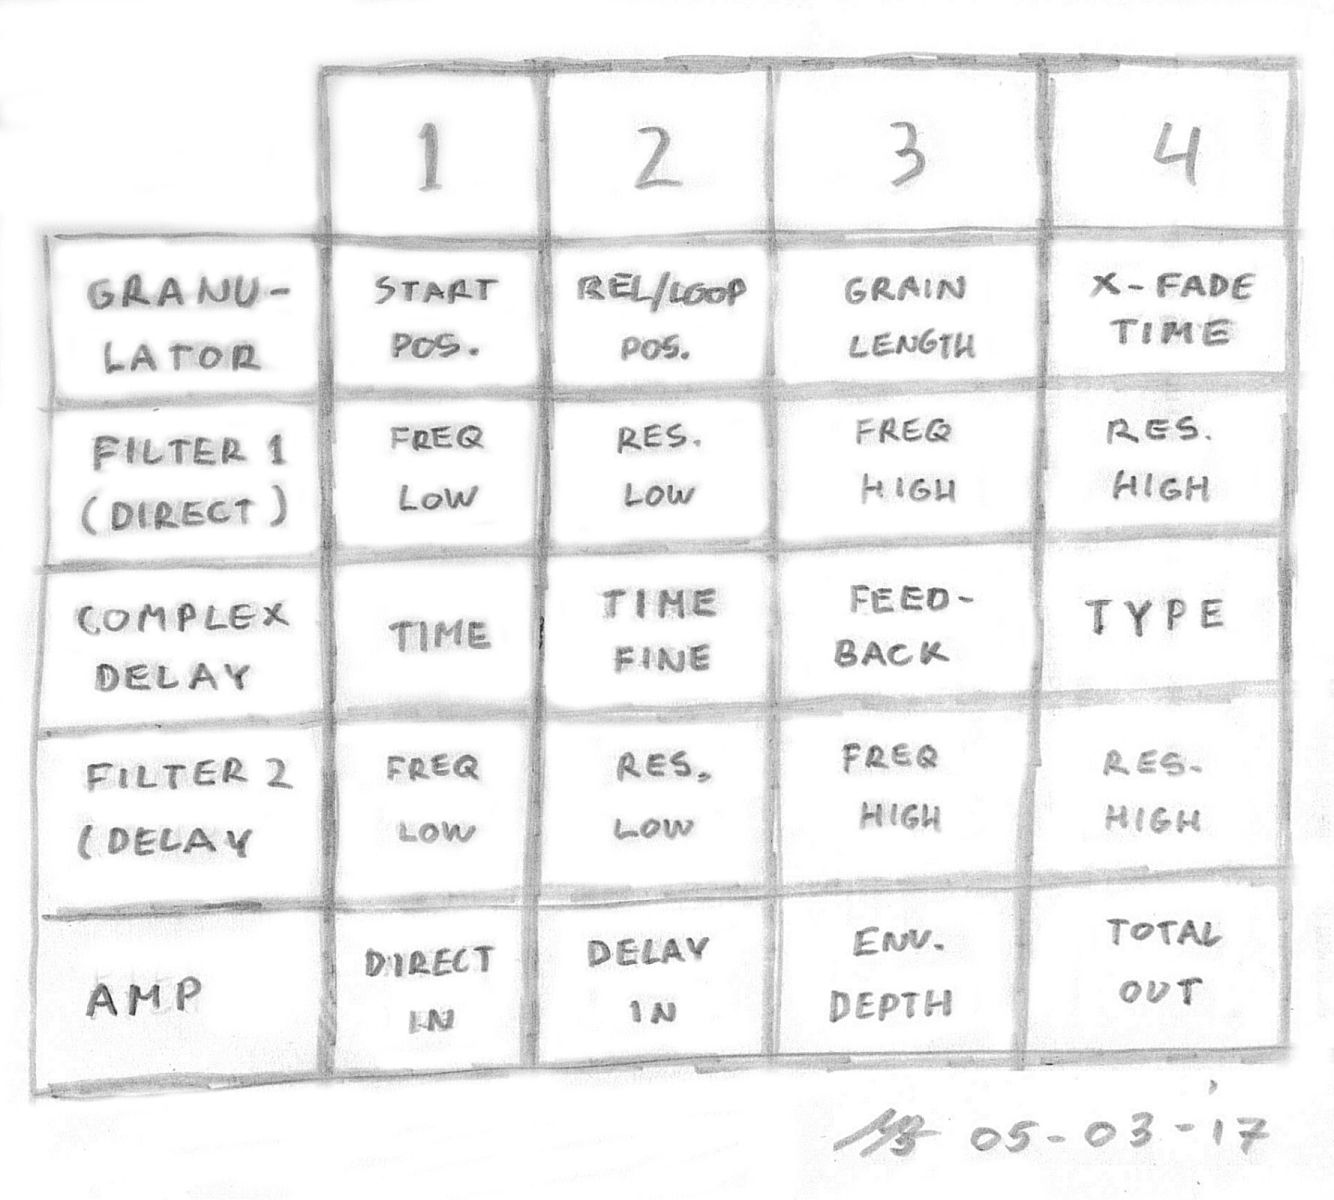 1 2 3 4
GRANU-
LATOR
START
POS.
REL/LOOP
POS.
GRAIN
LENGTH
X-FADE
TIME
FILTER 1
(DIRECT)
FREQ
LOW
RES.
LOW
FREQ
HIGH
RES.
HIGH
COMPLEX
DELAY
TIME
TIME
FINE
FEED-
BACK
TYPE
FILTER 2
(DELAY
FREQ
LOW
RES.
LOW
FREQ
HIGH
RES.
HIGH
AMP
DIRECT
IN
DELAY
IN
ENV.
DEPTH
TOTAL
OUT
05-03-'17